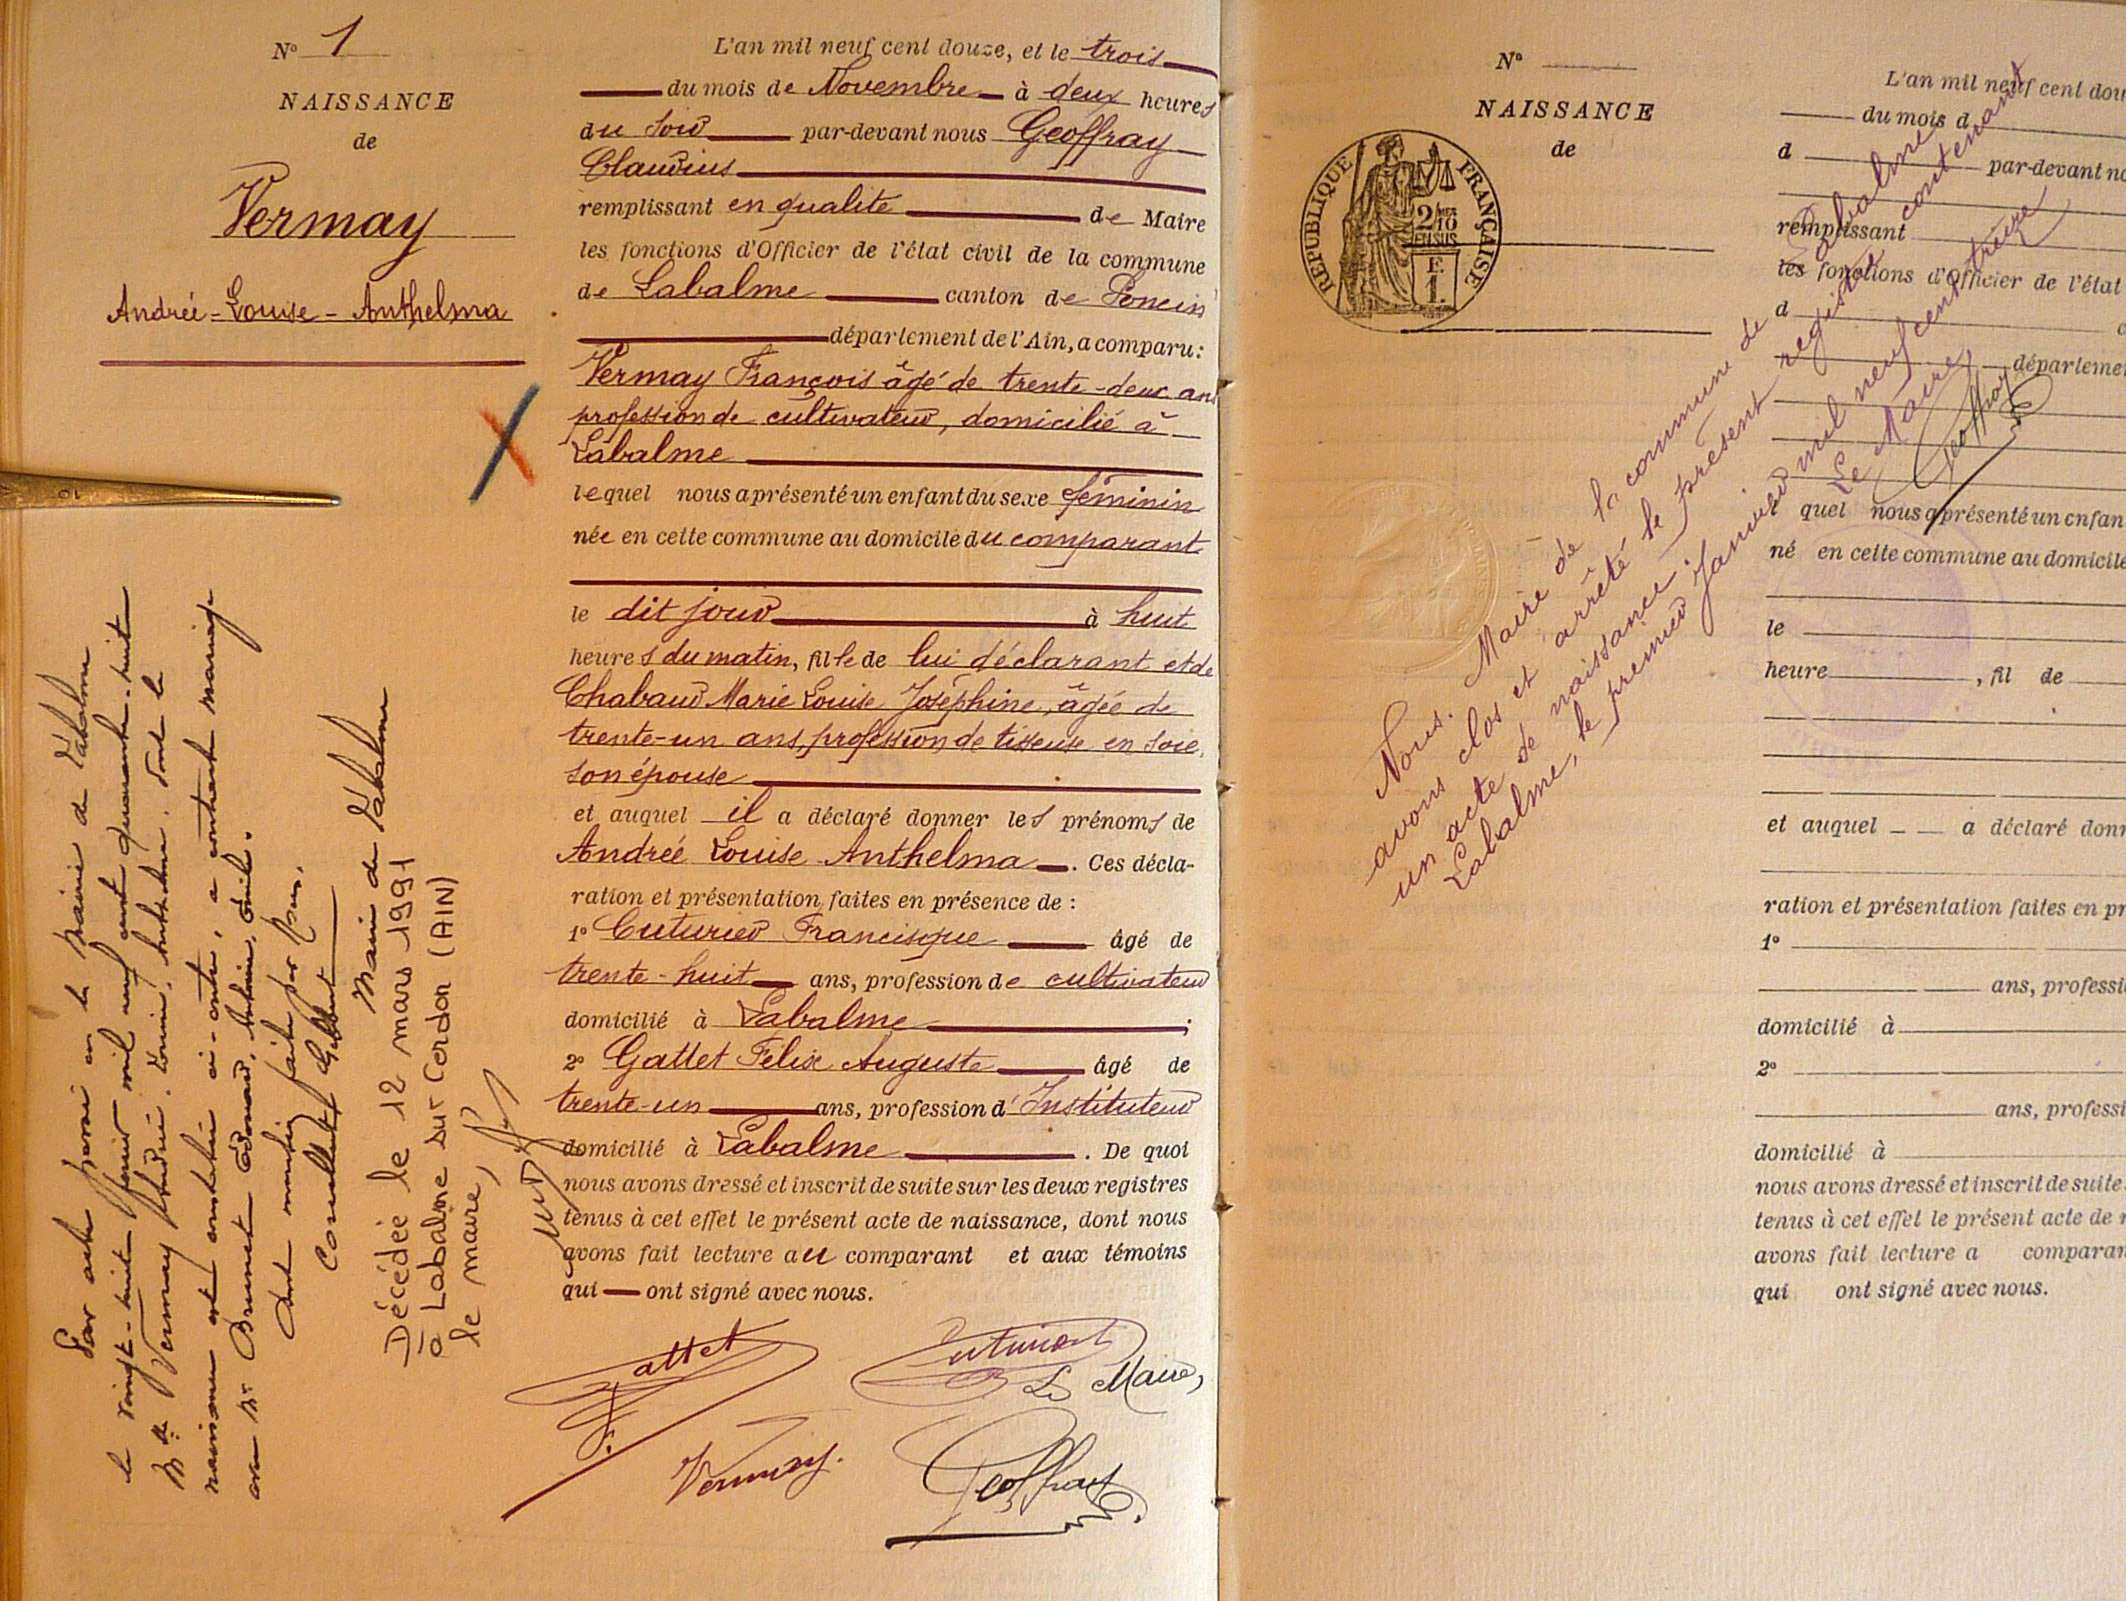 N° 1
NAISSANCE
de
Vermay
Andrée-Louise-Anthelma
L'an mil neuf cent douze, et le trois
du mois de Novembre à deux heures
du soir par-devant nous Geoffray
Claudius
remplissant en qualité de Maire
les fonctions d'Officier de l'état civil de la commune
de Labalme canton de Poncin
département de l'Ain, a comparu :
Vermay François âgé de trente-deux ans
profession de cultivateur, domicilié à
Labalme
lequel nous a présenté un enfant du sexe féminin
née en cette commune au domicile du comparant
le dit jour à huit
heures du matin, fille de lui déclarant et de
Chabaud Marie Louise Joséphine, âgée de
trente-un ans, profession de tisseuse en soie,
son épouse
et auquel il a déclaré donner les prénoms de
Andrée Louise Anthelma. Ces décla-
ration et présentation faites en présence de :
1° Cuturier Francisque âgé de
trente-huit ans, profession de cultivateur
domicilié à Labalme ;
2° Gattet Félix Auguste âgé de
trente-un ans, profession d'Instituteur
domicilié à Labalme. De quoi
nous avons dressé et inscrit de suite sur les deux registres
tenus à cet effet le présent acte de naissance, dont nous
avons fait lecture au comparant et aux témoins
qui ont signé avec nous.
Gattet
F.
Cuturier
Le Maire,
Vermay.
Geoffray
Par acte passé en la mairie de Labalme
le vingt-huit février mil neuf cent quarante-huit
Mlle Vermay Andrée, Louise, Anthelma, dont la
naissance est constatée ci-contre, a contracté mariage
avec Mr Brunet Edouard, Antoine, Emile.
Dont mention faite par Nous,
Maire de Labalme
Décédée le 12 mars 1991
à Labalme sur Cerdon (AIN)
le maire,
N°
NAISSANCE
de
RÉPUBLIQUE FRANÇAISE
2/10
EN SUS
E.
1.
L'an mil neuf cent dou
du mois d
d par-devant no
remplissant
les fonctions d'Officier de l'état
d c
départeme
quel nous a présenté un enfan
né en cette commune au domicile
le
heure , fil de
et auquel a déclaré donn
ration et présentation faites en pr
1°
ans, professi
domicilié à
2°
ans, professi
domicilié à
nous avons dressé et inscrit de suite
tenus à cet effet le présent acte de n
avons fait lecture a comparan
qui ont signé avec nous.
Nous. Maire de la commune de Labalme
avons clos et arrêté le présent registre contenant
un acte de naissance.
Labalme, le premier Janvier mil neuf cent treize
Le Maire,
Geoffray